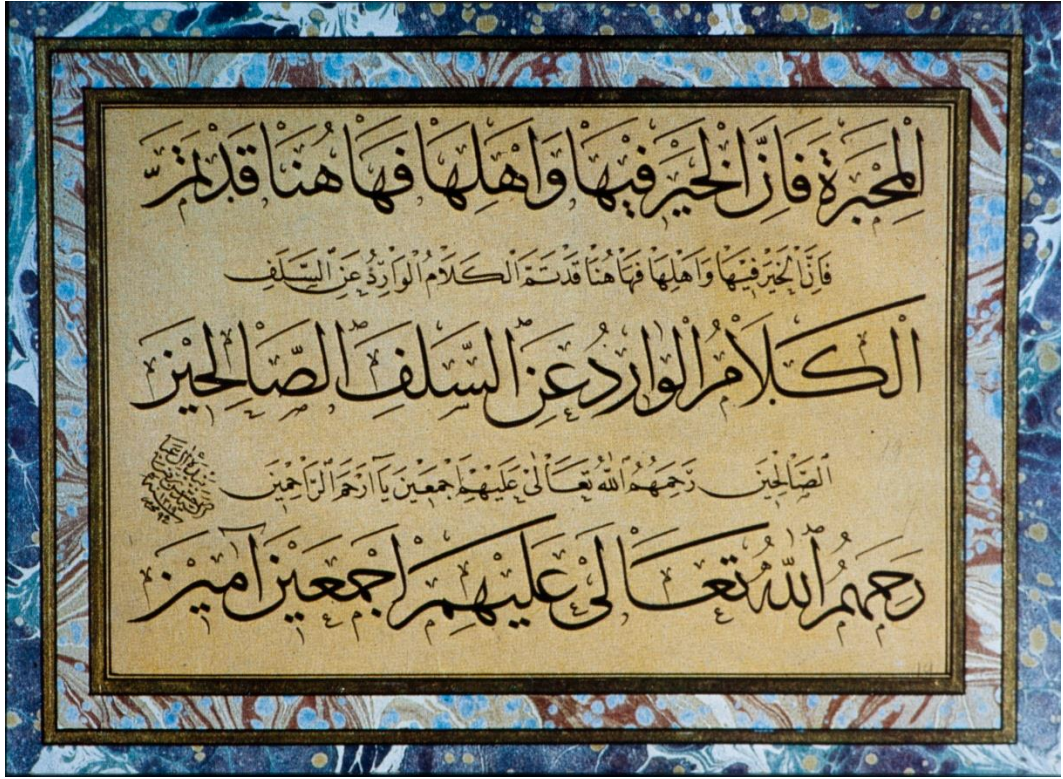 الْمِحْبَرَةِ فَاِنَّ الْخَيْرَ فِيْهَا وَاَهْلِهَا فَهَا هُنَا قَدْ تَمَّ
فَاِنَّ الْخَيْرَ فِيْهَا وَاَهْلِهَا فَهَا هُنَا قَدْ تَمَّ الْكَلَامُ الْوَارِدُ عَنِ السَّلَفِ
اَلْكَلَامُ الْوَارِدُ عَنِ السَّلَفِ الصَّالِحِيْنَ
الصَّالِحِيْنَ رَحِمَهُمُ اللّٰهُ تَعَالٰى عَلَيْهِمْ اَجْمَعِيْنَ يَا اَرْحَمَ الرَّاحِمِيْنَ
رَحِمَهُمُ اللّٰهُ تَعَالٰى عَلَيْهِمْ اَجْمَعِيْنَ آمِيْنَ
19